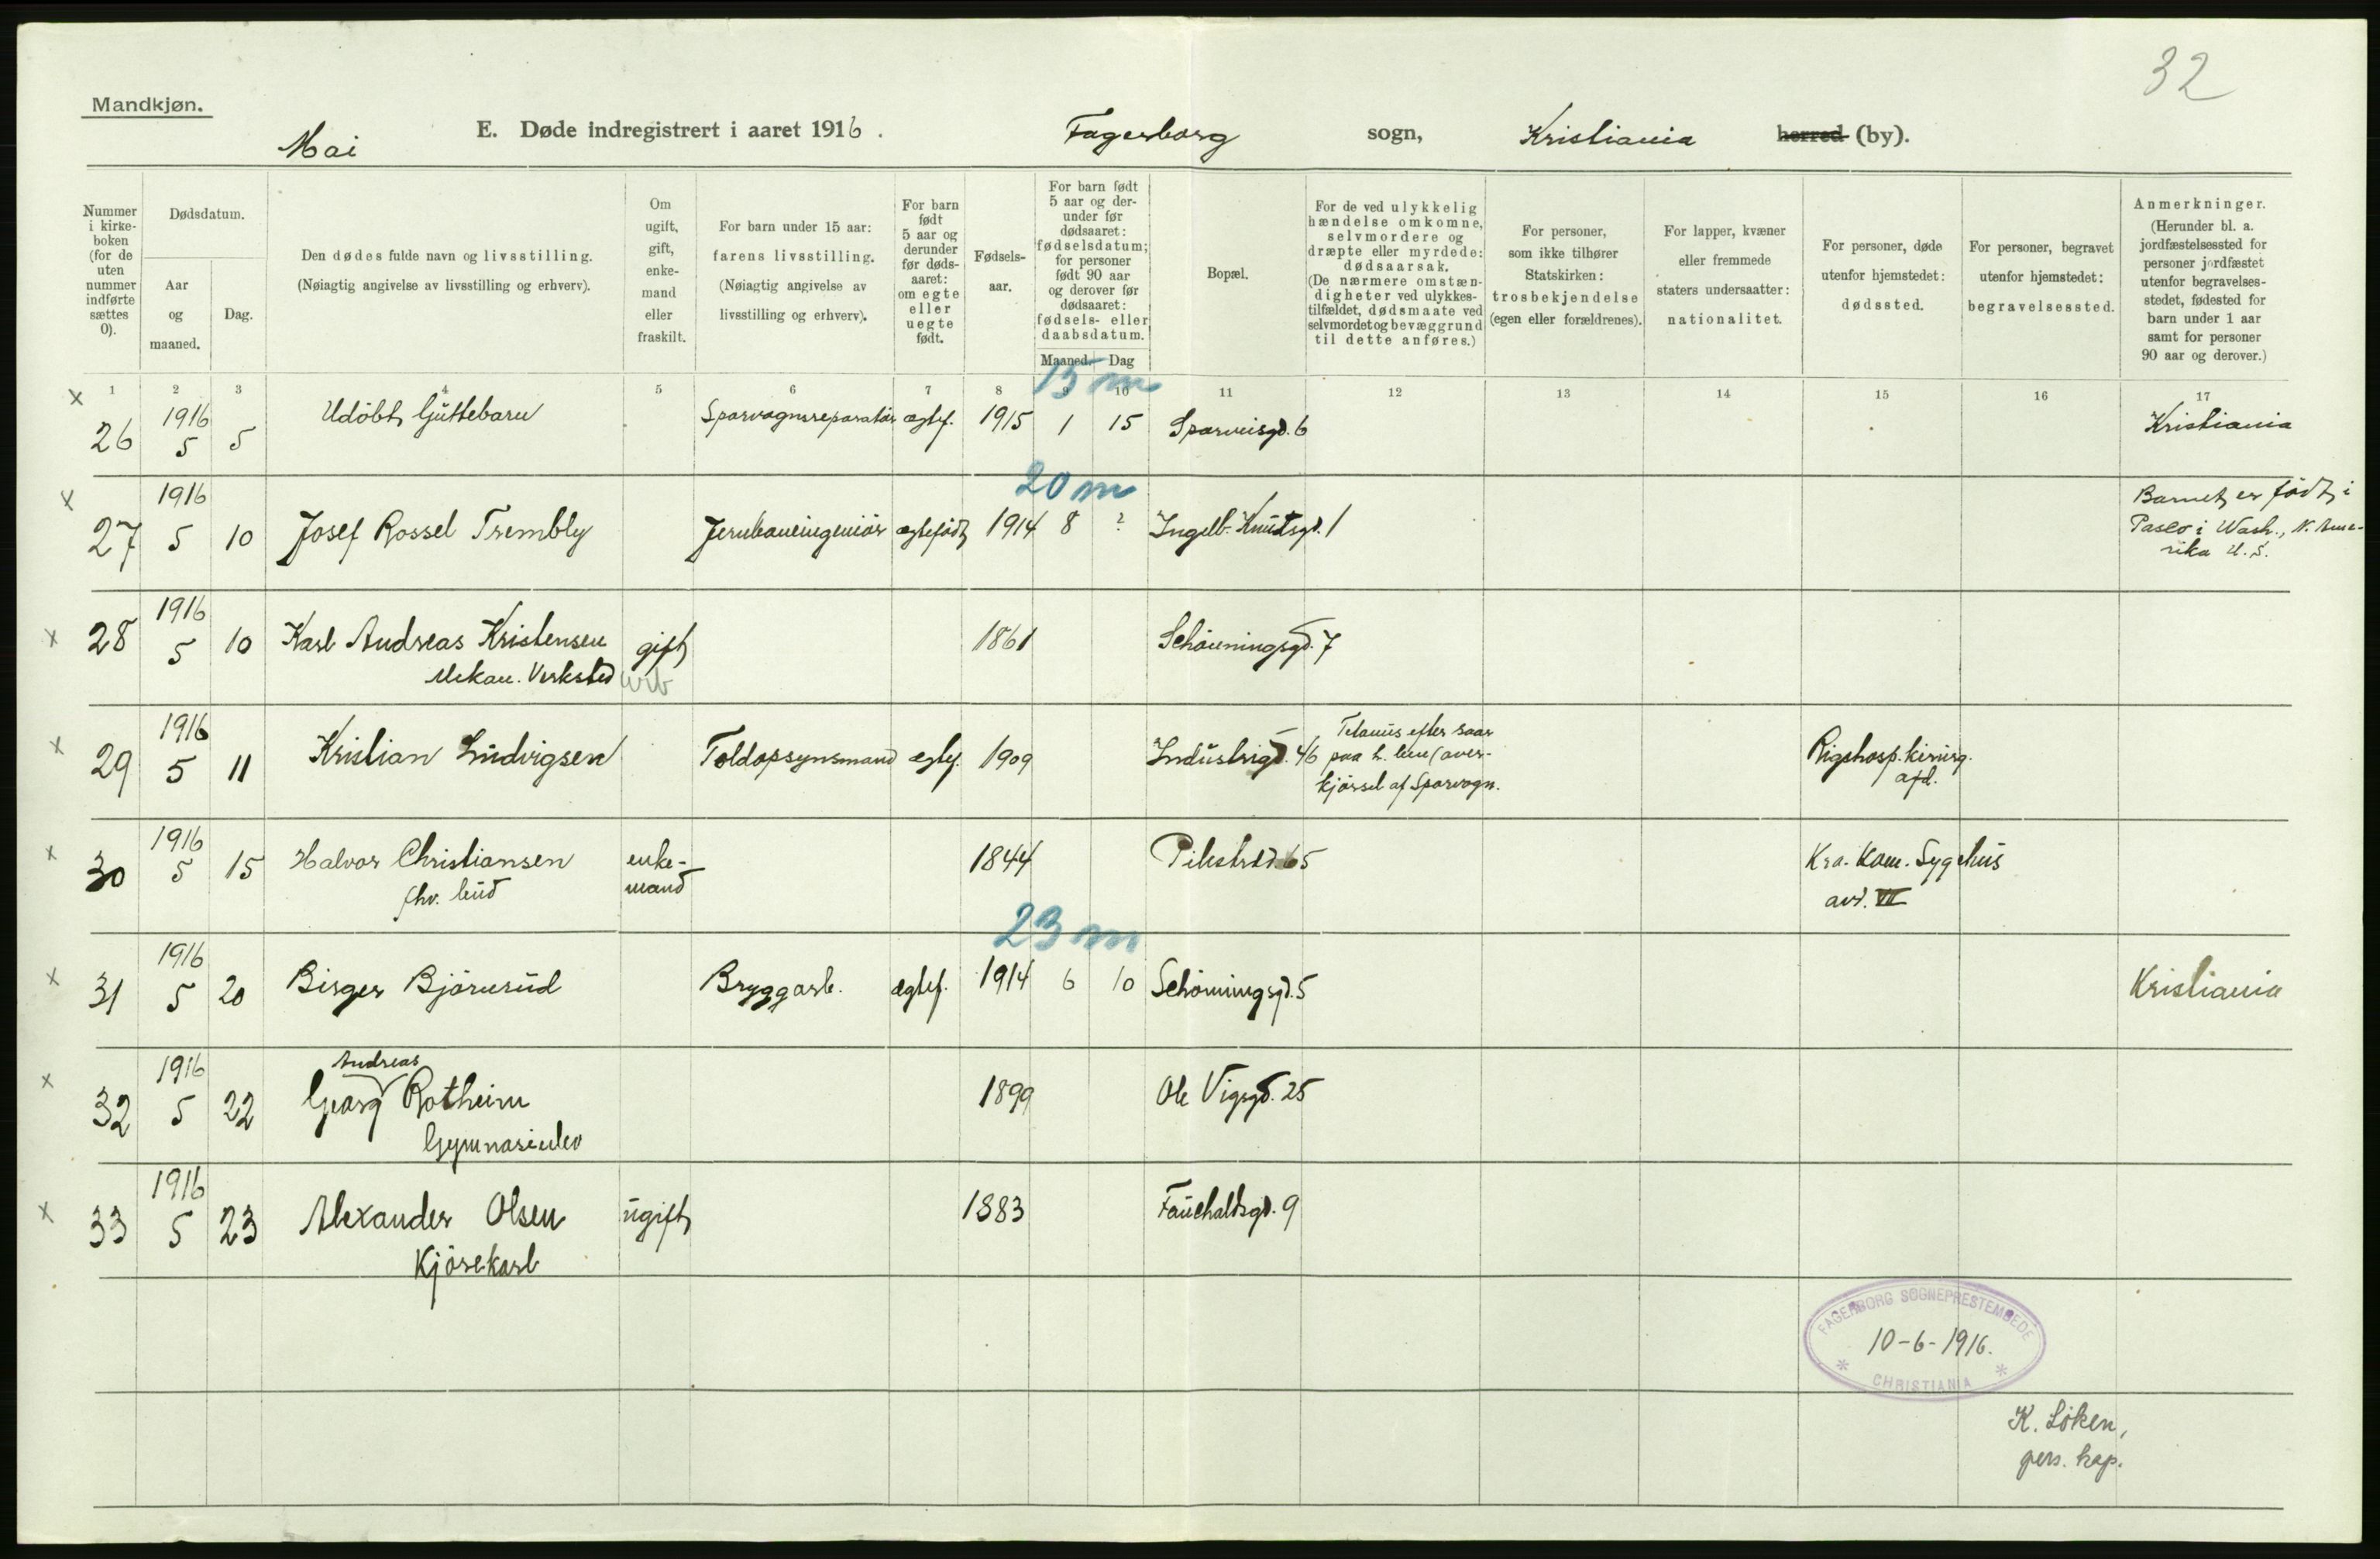 32
Mandkjøn.
Mai E. Døde indregistrert i aaret 1916. Fagerborg sogn, Kristiania herred (by).
Nummer i kirke-boken (for de uten nummer indførte sættes 0).
Dødsdatum.
Aar og maaned.
Dag.
Den dødes fulde navn og livsstilling.
(Nøiagtig angivelse av livsstilling og erhverv).
Om ugift, gift, enke-mand eller fraskilt.
For barn under 15 aar:
farens livsstilling.
(Nøiagtig angivelse av
livsstilling og erhverv).
For barn født 5 aar og derunder før døds-aaret: om egte eller uegte født.
Fødsels-aar.
For barn født 5 aar og der-under før dødsaaret: fødselsdatum; for personer født 90 aar og derover før dødsaaret: fødsels- eller daabsdatum.
Maaned. Dag
Bopæl.
For de ved ulykkelig hændelse omkomne, selvmordere og dræpte eller myrdede: dødsaarsak.
(De nærmere omstæn-digheter ved ulykkes-tilfældet, dødsmaate ved selvmordet og bevæggrund til dette anføres.)
For personer, som ikke tilhører Statskirken: trosbekjendelse (egen eller forældrenes).
For lapper, kvæner eller fremmede staters undersaatter: nationalitet.
For personer, døde utenfor hjemstedet: dødssted.
For personer, begravet utenfor hjemstedet: begravelsessted.
Anmerkninger.
(Herunder bl. a. jordfæstelsessted for personer jordfæstet utenfor begravelses-stedet, fødested for barn under 1 aar samt for personer 90 aar og derover.)
1 2 3 4 5 6 7 8 9 10 11 12 13 14 15 16 17
15 m
x 26 1916 5 5 Udöbt Guttebarn Sporvognsreparatör egtef. 1915 1 15 Sporveisgd. 6 Kristiania
20 m
x 27 1916 5 10 Josef Rossel Trembly Jernbaneingeniör egtefödt 1914 8 ? Ingelb. Knutsgd. 1 Barnet er födt i
Pasco i Wash., N. Ame-
rika U.S.
x 28 1916 5 10 Karl Andreas Kristensen gift 1861 Schöningsgd. 7
Mekan. Verksted
x 29 1916 5 11 Kristian Ludvigsen Toldopsynsmand egtef. 1909 Industrigd. 46 Tetanus efter saar
paa h. ben (over-
kjörsel af Sporvogn.
Rigshosp. kirurg.
afd.
x 30 1916 5 15 Halvor Christiansen enke-
mand 1844 Pilestræd. 65 Kra. Kom. Sygehus
avd. VII
fhv. bud
23 m
x 31 1916 5 20 Birger Björnrud Bryggarb. egtef. 1914 6 10 Schöningsgd. 5 Kristiania
x 32 1916 5 22 Georg Andreas Rotheim 1899 Ole Vigsgd. 25
Gymnasiulev
x 33 1916 5 23 Alexander Olsen ugift 1883 Fauchaldsgd. 9
Kjörekarl
FAGERBORG SOGNEPRESTEMBEDE
10-6-1916.
* CHRISTIANIA *
K. Löken,
pers. kap.